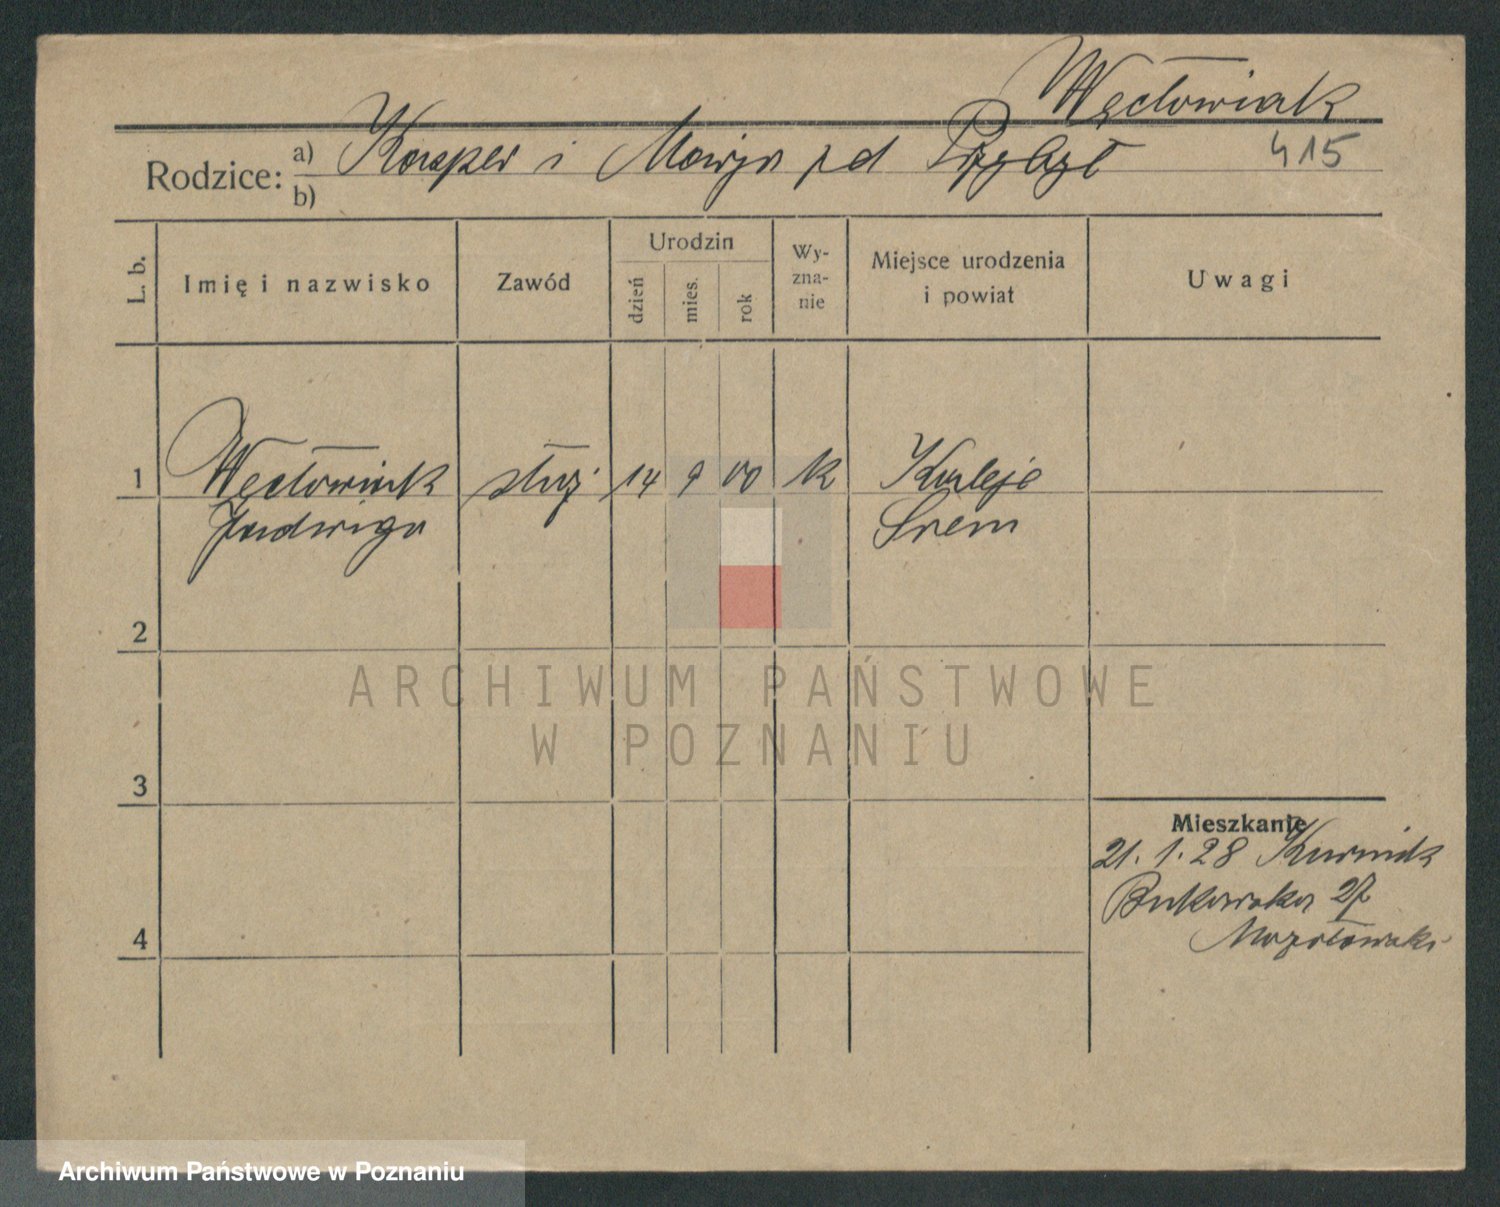 Węcłowiak
Rodzice: a) Kasper i Marja z d Przybył 415
b)
L. b.
Imię i nazwisko
Zawód
Urodzin
dzień
mies.
rok
Wy-
zna-
nie
Miejsce urodzenia
i powiat
Uwagi
1 Węcłowiak służ. 14 9 00 k Kaleje
Jadwiga Śrem
2
ARCHIWUM PAŃSTWOWE
W POZNANIU
3
Mieszkanie
21. 1. 28 Kurnik
Bukowska 27
4
Archiwum Państwowe w Poznaniu